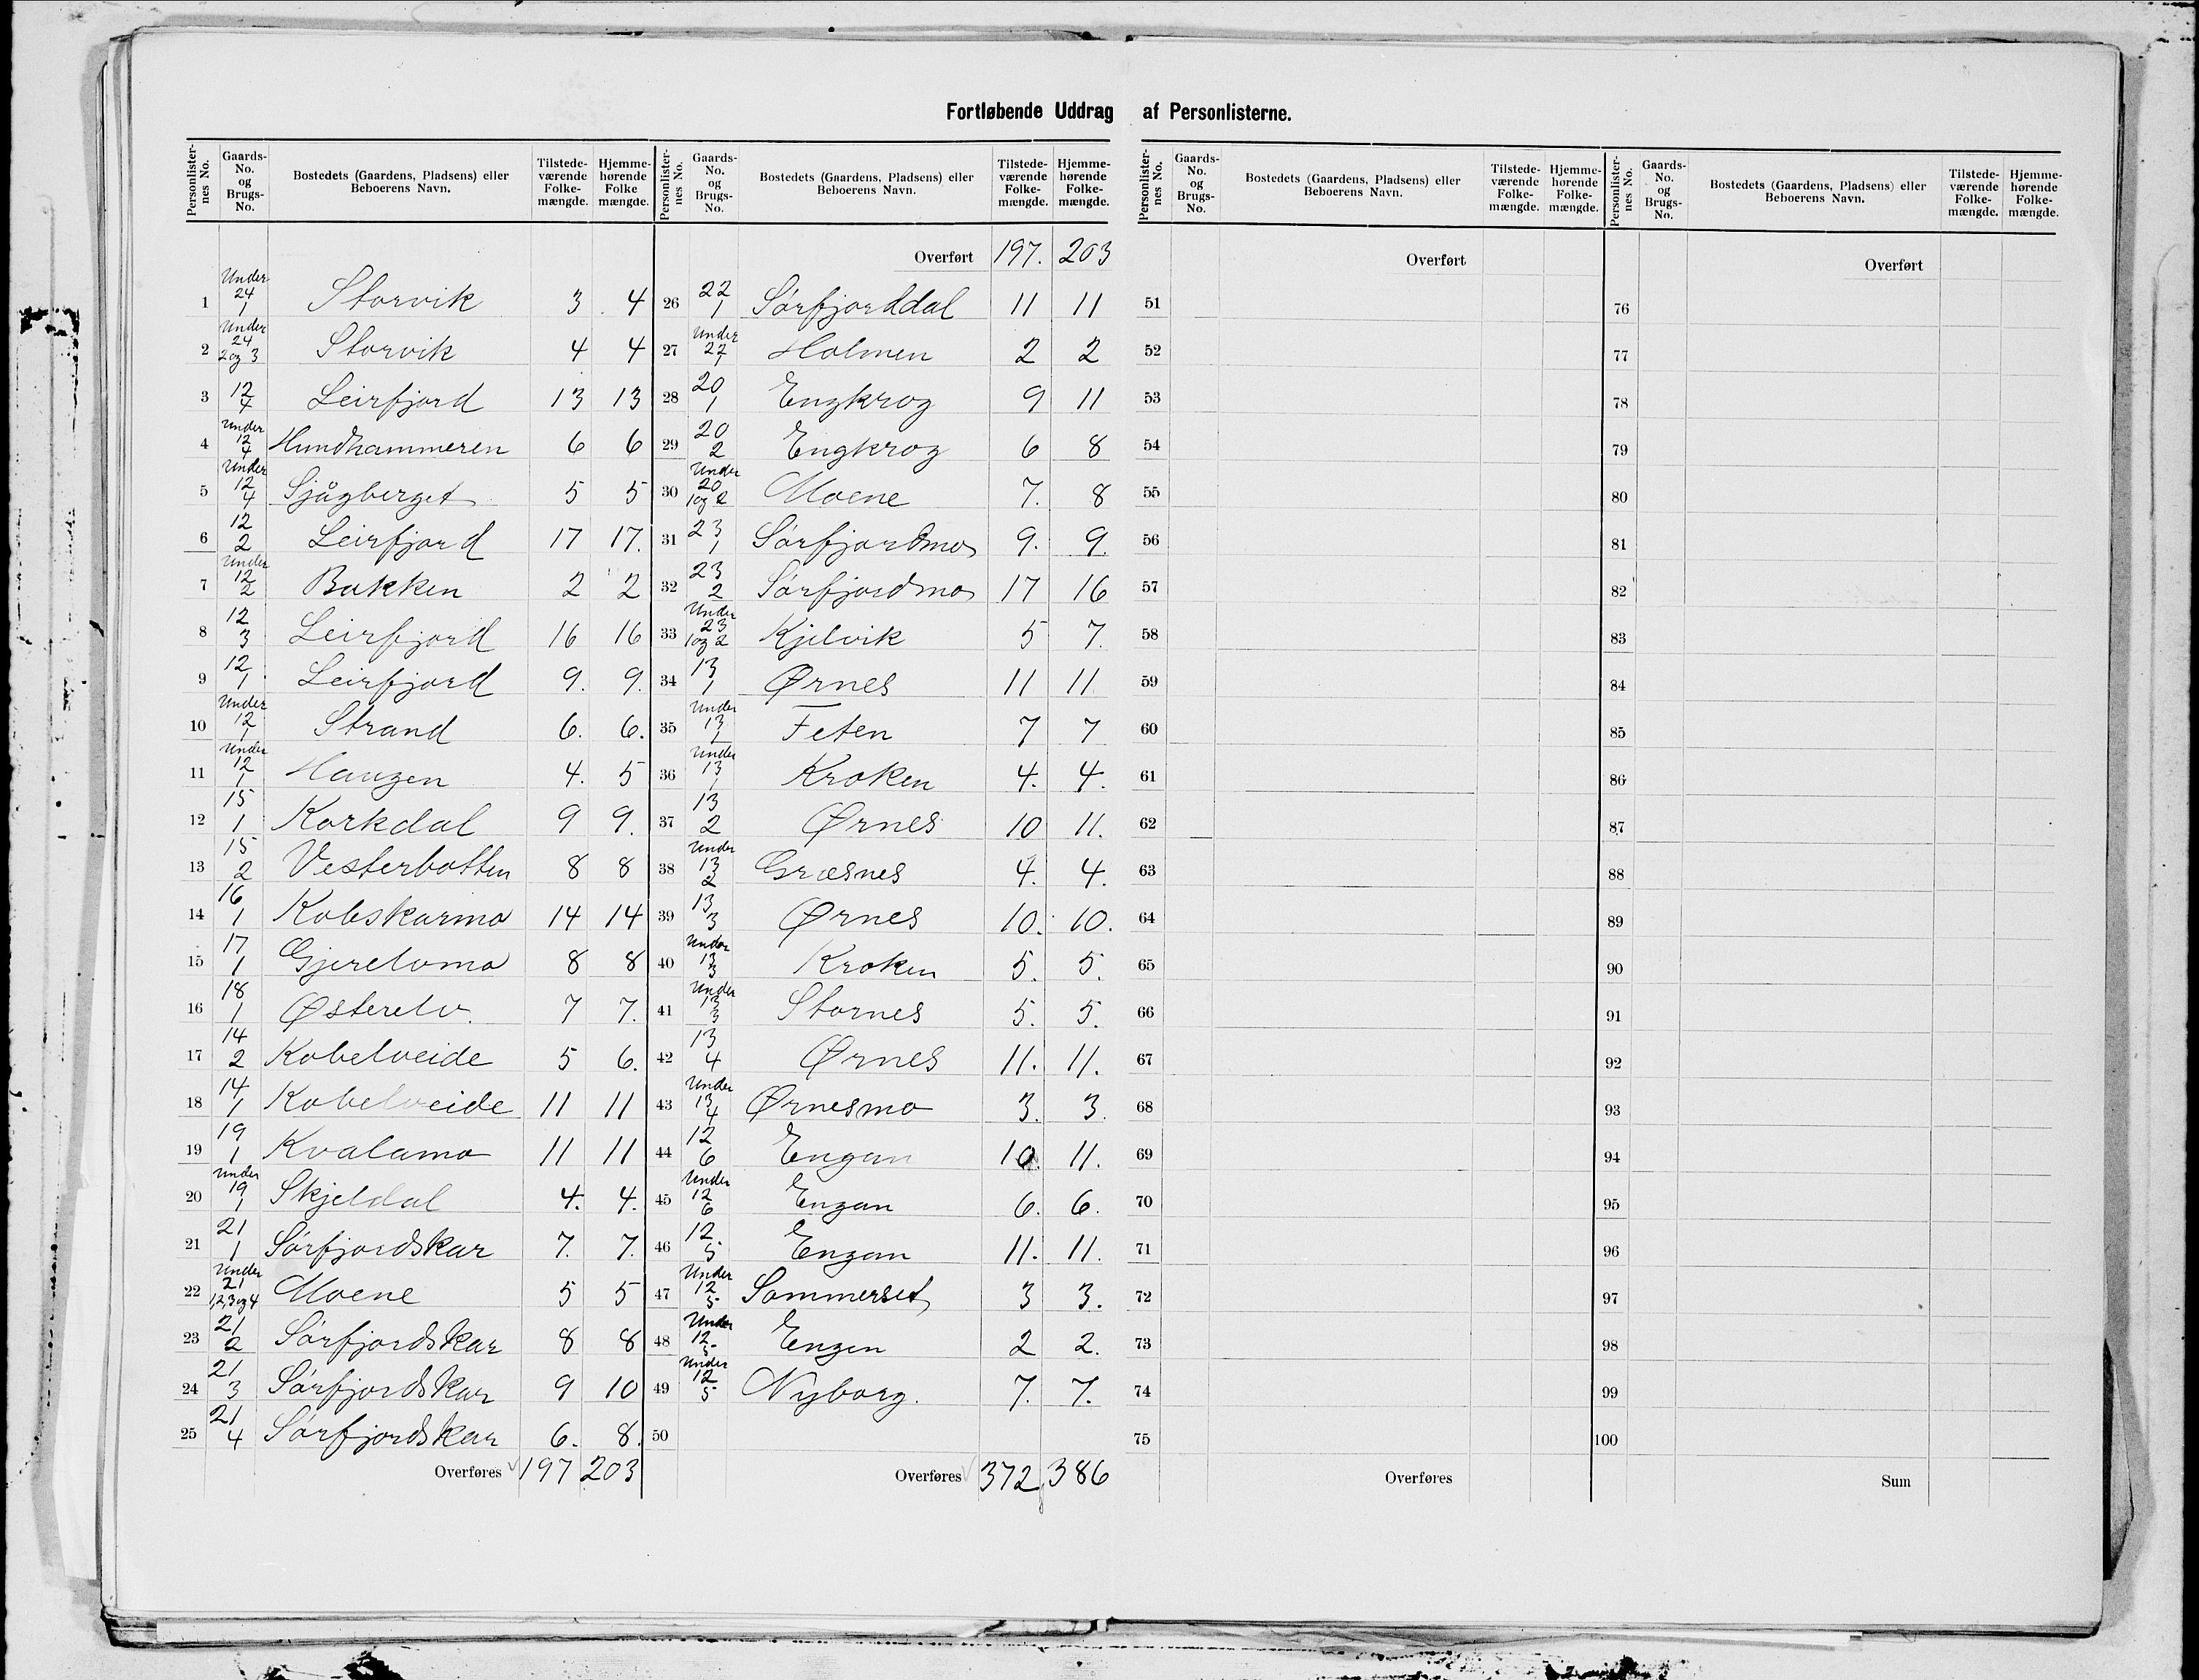 Fortløbende Uddrag af Personlisterne.
Personlisternes No. | Gaards-No. og Brugs-No. | Bostedets (Gaardens, Pladsens) eller Beboerens Navn. | Tilstedeværende Folkemængde. | Hjemmehørende Folkemængde.
1 Under 24 1 Storvik 3 4
2 Under 24 2 og 3 Storvik 4 4
3 12 4 Leirfjord 13 13
4 Under 12 4 Hundhammeren 6 6
5 Under 12 4 Sjågberget 5 5
6 12 2 Leirfjord 17 17.
7 Under 12 2 Bakken 2 2
8 12 3 Leirfjord 16 16
9 12 1 Leirfjord 9. 9.
10 Under 12 1 Strand 6. 6.
11 Under 12 1 Haugen 4. 5
12 15 1 Korkdal 9 9.
13 15 2 Vesterbotten 8 8
14 16 1 Kobskarmo 14 14
15 17 1 Gjerelvmo 8 8
16 18 1 Østerelv. 7 7.
17 14 2 Kobelveide 5 6.
18 14 1 Kobelveide 11 11
19 19 1 Kvalamo 11 11
20 Under 19 1 Skjeldal 4. 4.
21 21 1 Sørfjordskar 7. 7.
22 Under 21 1,2,3 og 4 Moene 5 5
23 21 2 Sørfjordskar 8 8
24 21 3 Sørfjordskar 9 10
25 21 4 Sørfjordskar 6. 8.
Overføres 197 203
Overført 197. 203
26 22 1 Sørfjorddal 11 11
27 Under 22 1 Holmen 2 2
28 20 1 Engkrog 9 11
29 20 2 Engkrog 6 8
30 Under 20 1 og 2 Moene 7. 8
31 23 1 Sørfjordmo 9. 9.
32 23 2 Sørfjordmo 17 16
33 Under 23 1 og 2 Kjelvik 5 7.
34 13 1 Ørnes 11 11
35 Under 13 1 Feten 7 7
36 Under 13 1 Kroken 4. 4.
37 13 2 Ørnes 10 11.
38 Under 13 2 Græsnes 4. 4.
39 13 3 Ørnes 10. 10.
40 Under 13 3 Kroken 5. 5.
41 Under 13 3 Stornes 5. 5.
42 13 4 Ørnes 11. 11.
43 Under 13 4 Ørnesmo 3. 3.
44 12 6 Engan 10. 11.
45 Under 12 6 Engan 6. 6.
46 12 5 Engan 11. 11.
47 Under 12 5 Sommerset 3 3.
48 Under 12 5 Engen 2 2.
49 Under 12 5 Nyborg. 7. 7.
50
Overføres 372 386
Personlisternes No. | Gaards-No. og Brugs-No. | Bostedets (Gaardens, Pladsens) eller Beboerens Navn. | Tilstedeværende Folkemængde. | Hjemmehørende Folkemængde.
Overført
51
52
53
54
55
56
57
58
59
60
61
62
63
64
65
66
67
68
69
70
71
72
73
74
75
Overføres
Overført
76
77
78
79
80
81
82
83
84
85
86
87
88
89
90
91
92
93
94
95
96
97
98
99
100
Sum